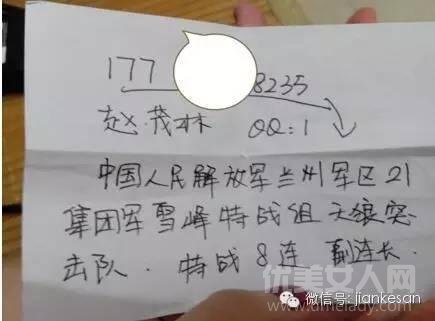 177 8235
赵茂林 QQ:1
中国人民解放军兰州军区21
集团军雪峰特战组天狼突
击队. 特战8连 副连长.
优美女人网
微信号: jiankesan
www.umelady.com